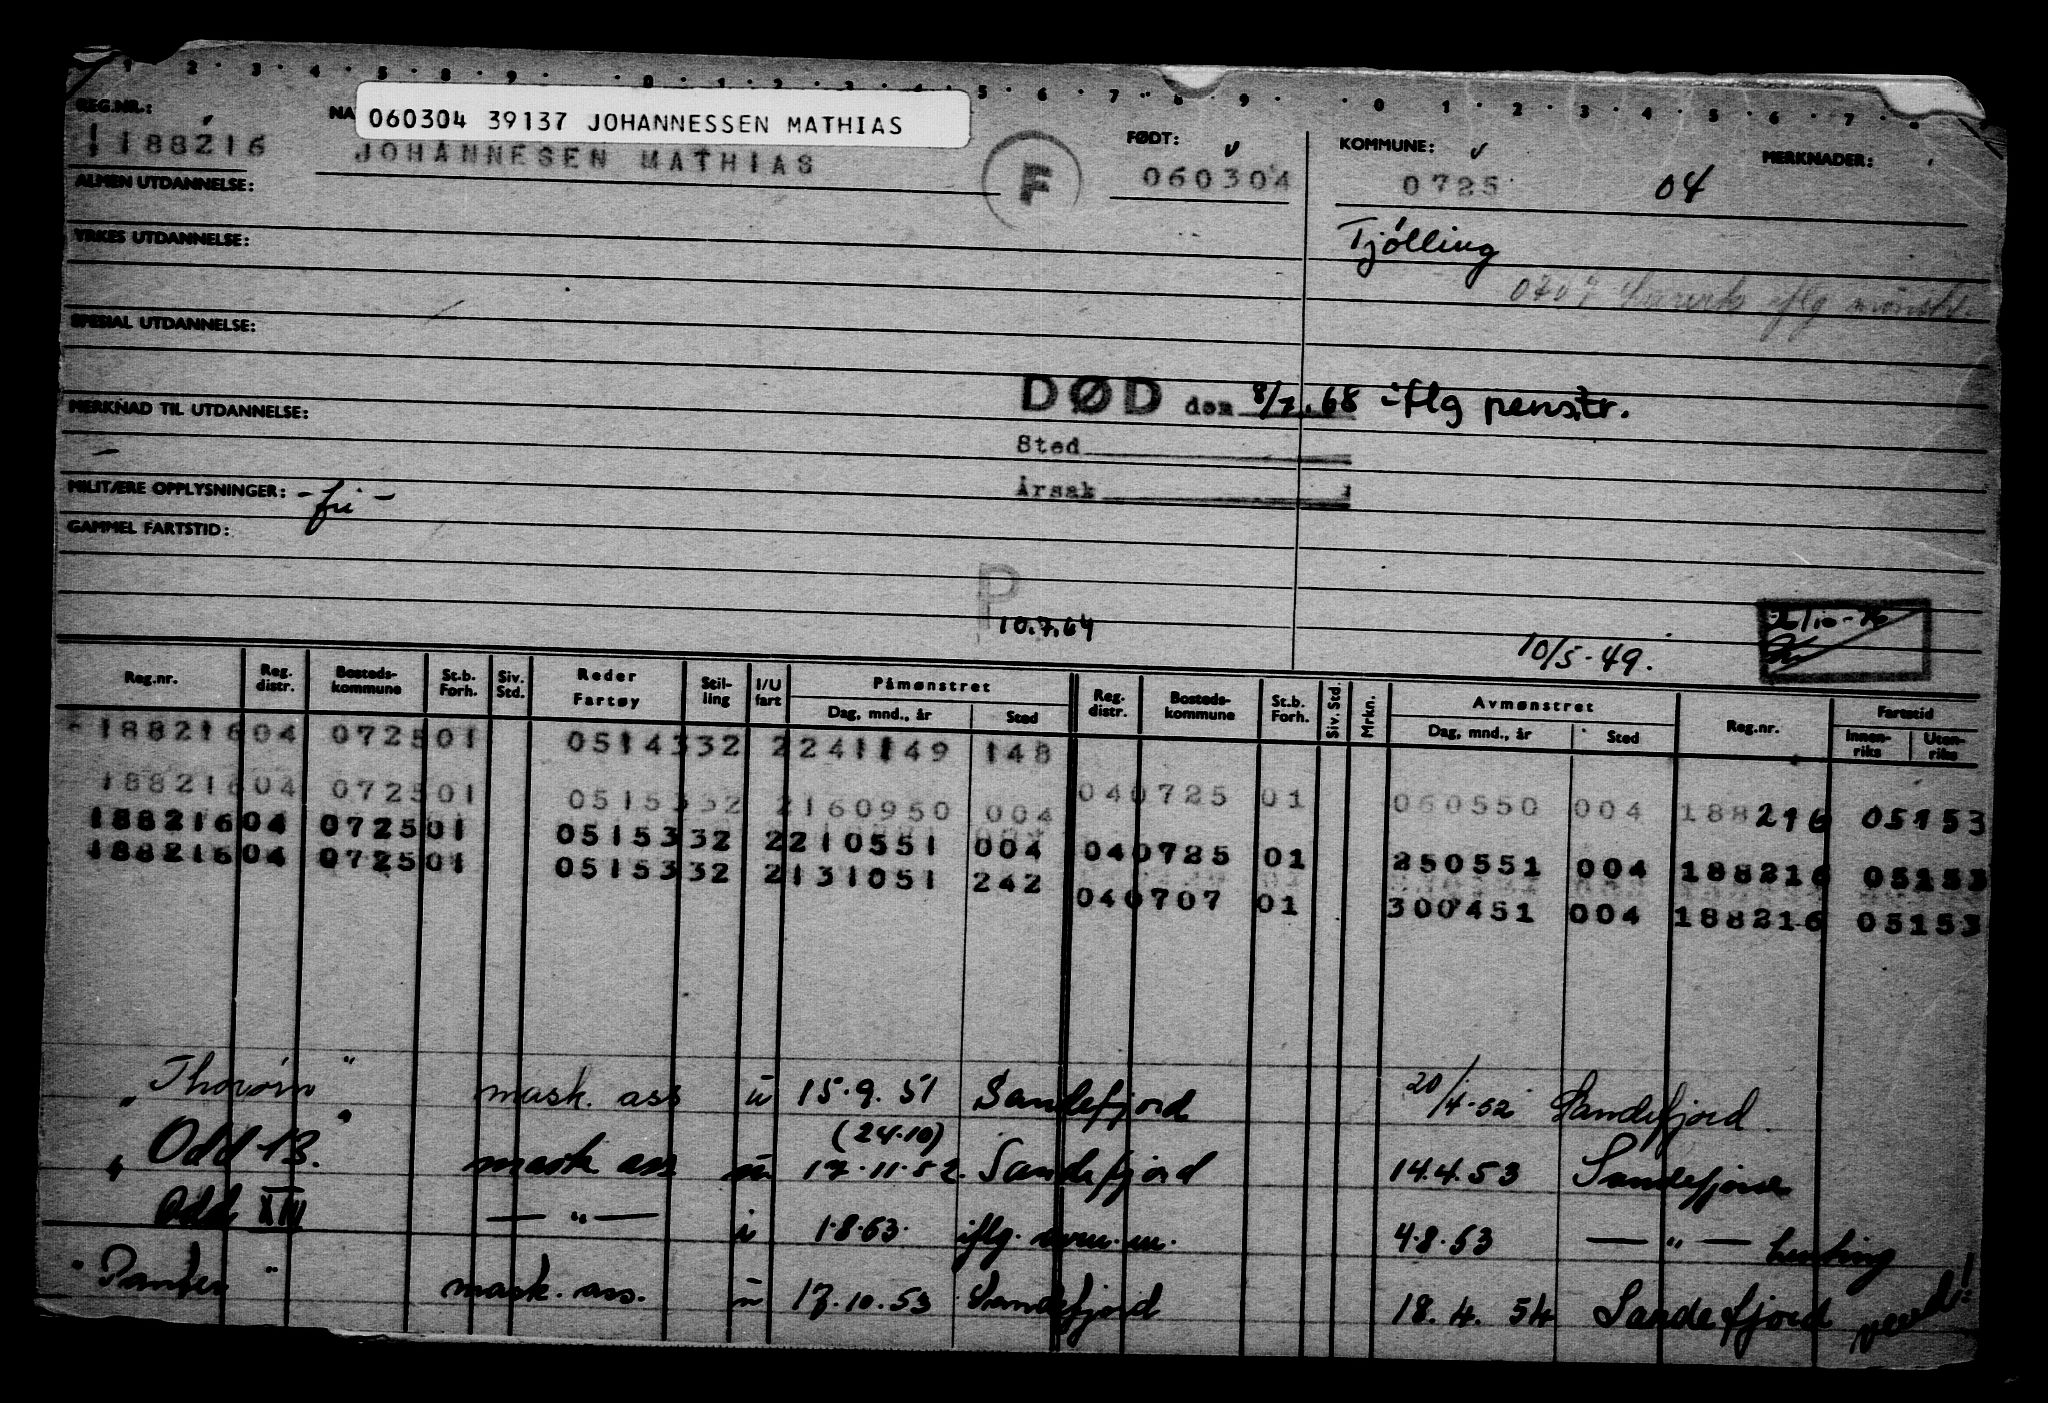 1 2 3 4 5 8 9 0 1 2 3 4 5 6 7 8 9 0 1 2 3 4 5 6 7 8
REG.NR.: NA 060304 39137 JOHANNESSEN MATHIAS FØDT: KOMMUNE: MERKNADER:
1188216 JOHANNESEN MATHIAS F 060304 0725 04
ALMEN UTDANNELSE:
Tjølling
YRKES UTDANNELSE:
iflg mønstr.
SPESIAL UTDANNELSE:
DØD den 8/7.68 iflg penstr.
MERKNAD TIL UTDANNELSE:
Sted
MILITÆRE OPPLYSNINGER: - fri -
Årsak
GAMMEL FARTSTID:
P
10.7.64
10/5-49.
Reg.nr. Reg. distr. Bosteds-kommune St.b. Forh. Siv. Std. Reder Fartøy Stil-ling I/U fart Påmønstret Dag, mnd., år Sted Reg. distr. Bosteds-kommune St.b. Forh. Siv. Std. Mrkn. Avmønstret Dag, mnd., år Sted Reg.nr. Fartstid Innen-riks Uten-riks
188216 04 0725 01 0514332 2 241149 148
188216 04 0725 01 0515332 2 160950 004 04 0725 01 060550 004 188216 05153
188216 04 0725 01 0515332 2 210551 004 04 0725 01 250551 004 188216 05153
188216 04 0725 01 0515332 2 131051 242 04 0707 01 300451 004 188216 05153
" Thorørn " mask. ass u 15.9.51 Sandefjord 20/4-52 Sandefjord
(24.10)
" Odd 13. " mask ass u 17.11.52. Sandefjord 14.4.53 Sandefjord
Odd XIV — " — i 1.8.53. iflg. 4.8.53 — " —
" Panter " mask. ass. u 17.10.53 Sandefjord 18.4.54 Sandefjord